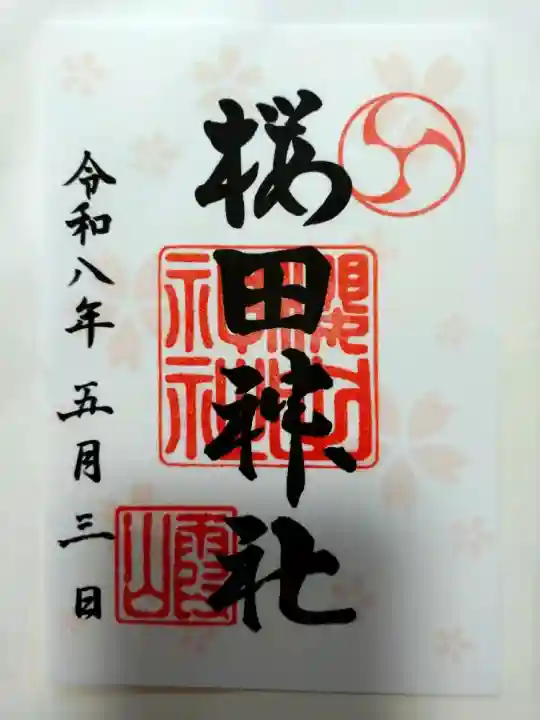 桜田神社
令和八年 五月 三日